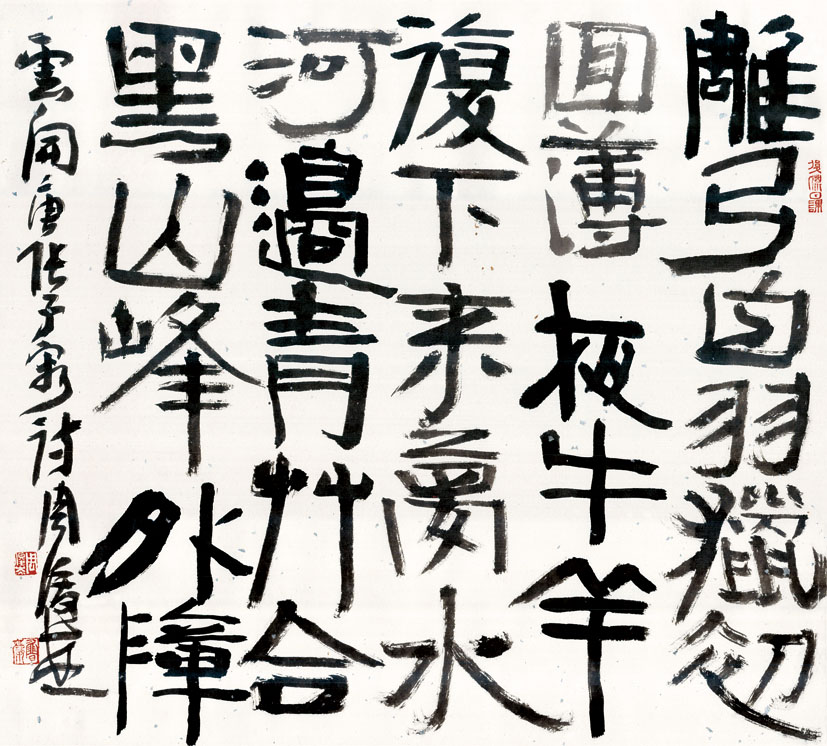 雕弓白羽獵初
回薄夜牛羊
復下来夢水
河邊青艸合
黑山峰外陣
雲開唐張子容詩周俊杰
俊杰日課